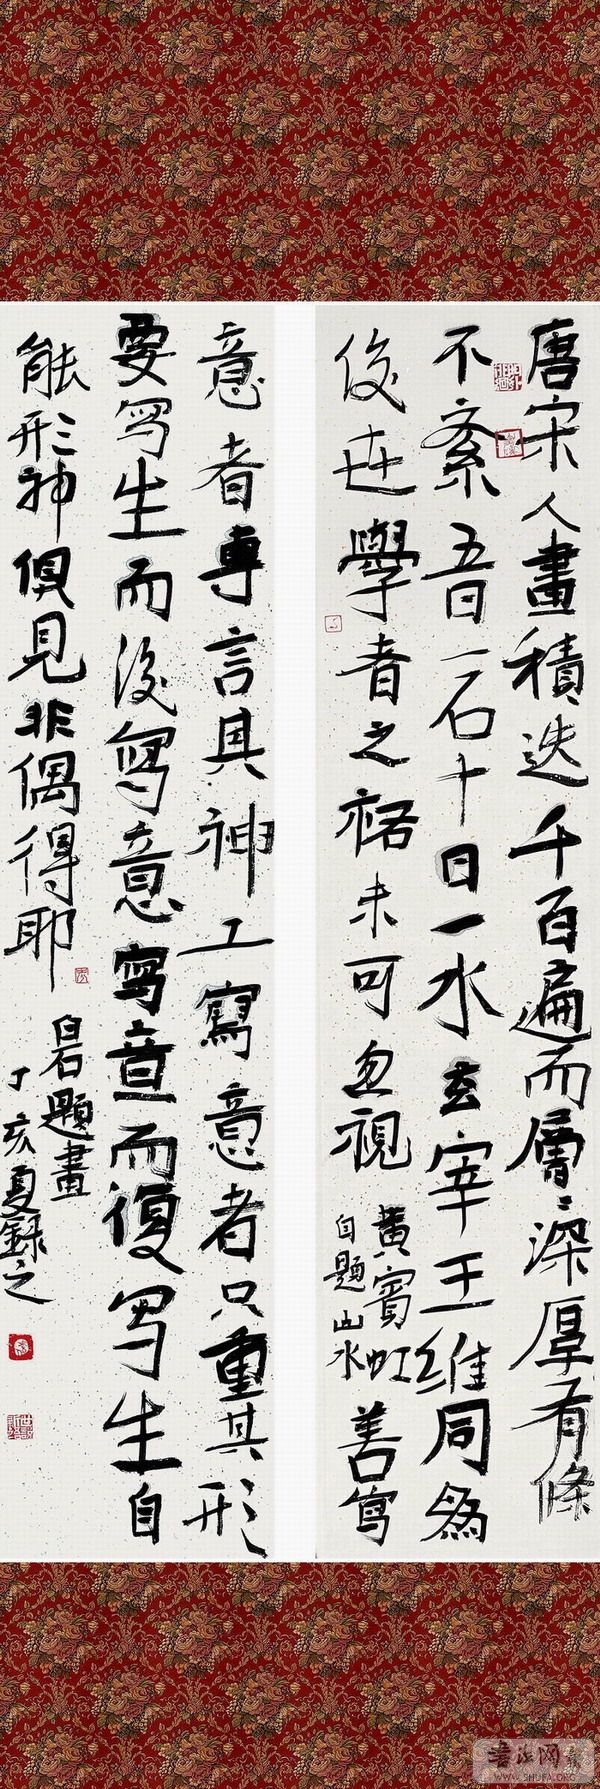 唐宋人畫積迭千百遍而層〻深厚有條
不紊五日一石十日一水玄宰王維同為
後世學者之未可忽視
黃賓虹
自題山水
善寫
意者專言其神工寫意者只重其形
要寫生而後寫意寫意而復寫生自
能形神俱見非偶得耶
白石題畫
丁亥夏錄之
書法网
WWW.SHUFA.ORG